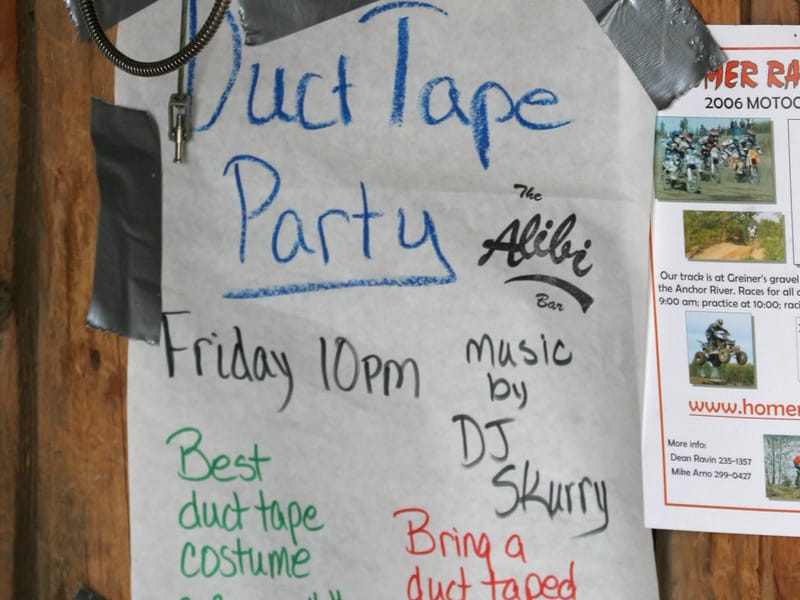 Duct Tape
Party
The
Alibi
Bar
Friday 10pm
music
by
DJ
Skurry
Best
duct tape
costume
Bring a
duct taped
2006 MOTOC
Our track is at Greiner's gravel
the Anchor River. Races for all
9:00 am; practice at 10:00; rac
www.homer
More info:
Dean Ravin 235-1357
Mike Arno 299-0427